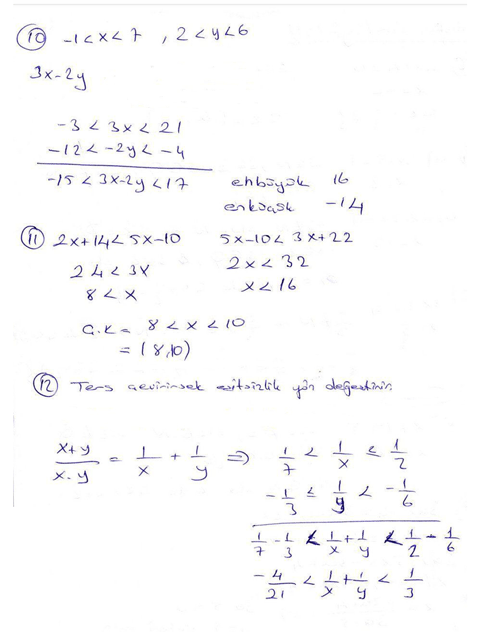 10 -1<x<7 , 2<y<6
3x-2y
-3 < 3x < 21
-12 < -2y < -4
-15 < 3x-2y < 17 en büyük 16
en küçük -14
11 2x+14<5x-10 5x-10<3x+22
24<3x 2x<32
8<x x<16
Ç.K = 8<x<10
= (8,10)
12 Ters çevirirsek eşitsizlik yön değiştirir.
x+y/x.y = 1/x + 1/y ⇒ 1/7 < 1/x ≤ 1/2
-1/3 ≤ 1/y < -1/6
1/7 - 1/3 < 1/x + 1/y < 1/2 - 1/6
-4/21 < 1/x + 1/y < 1/3